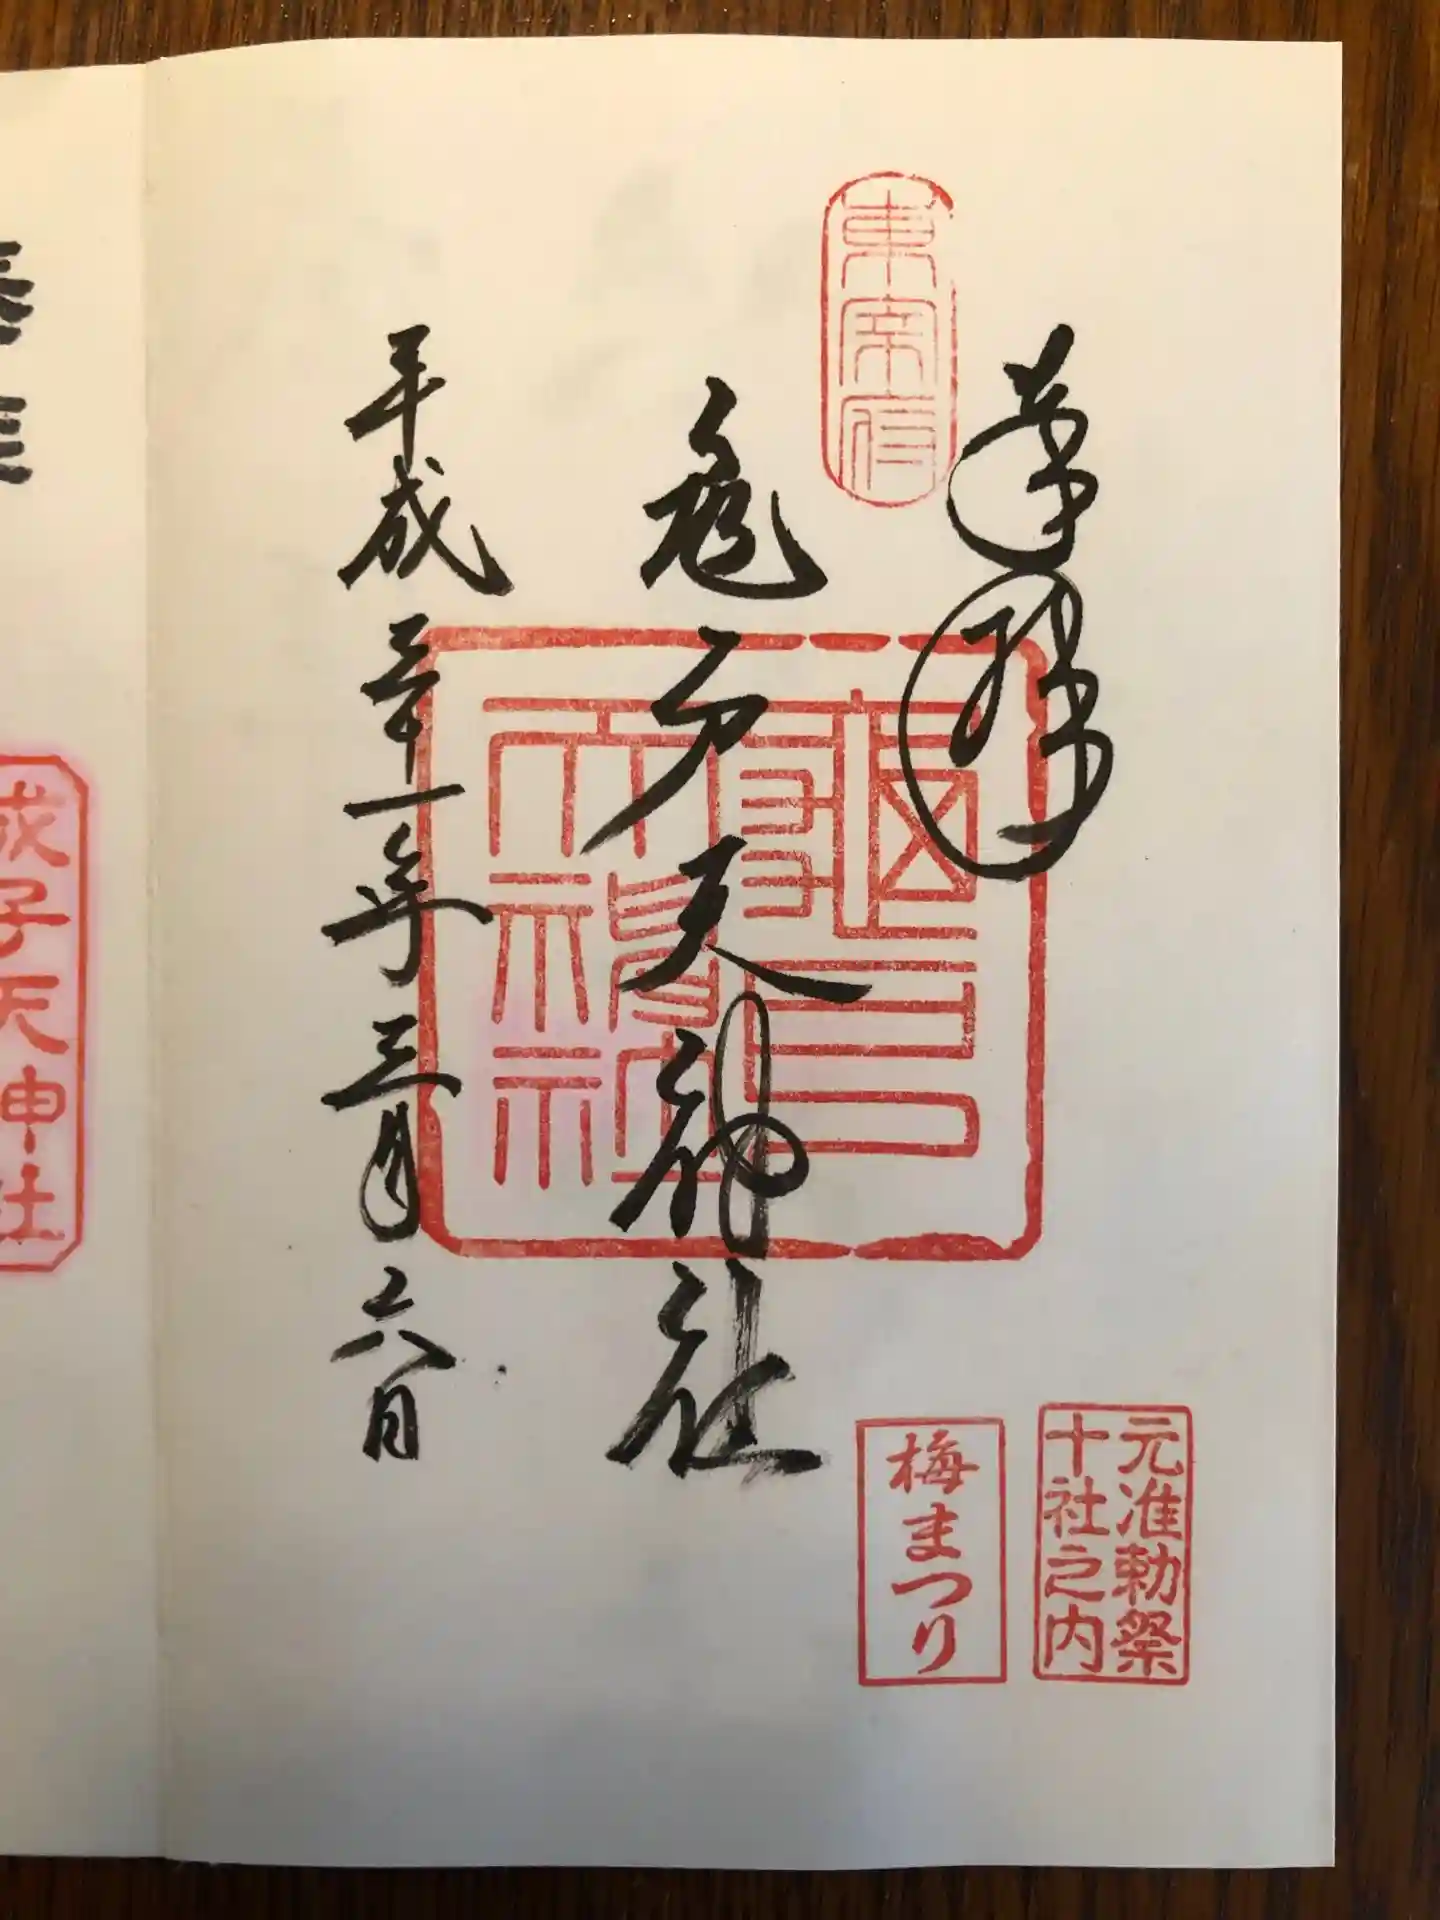 奉拝
東宰府
亀戸天神社
亀戸天神社
平成三十一年三月六日
元准勅祭
十社之内
梅まつり
成子天神社